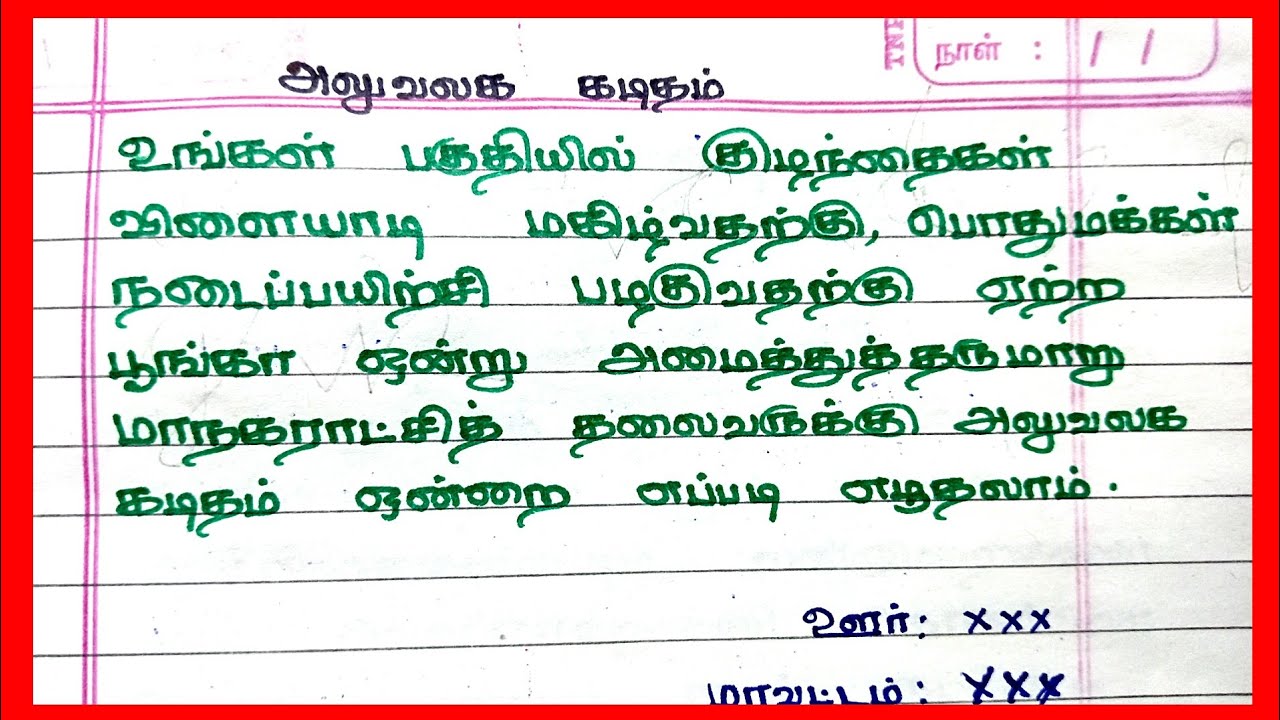 நாள் : / /
அலுவலக கடிதம்
உங்கள் பகுதியில் குழந்தைகள்
விளையாடி மகிழ்வதற்கு, பொதுமக்கள்
நடைப்பயிற்சி பழகுவதற்கு ஏற்ற
பூங்கா ஒன்று அமைத்துத்தருமாறு
மாநகராட்சித் தலைவருக்கு அலுவலக
கடிதம் ஒன்றை எப்படி எழுதலாம்.
ஊர்: xxx
மாவட்டம்: xxx